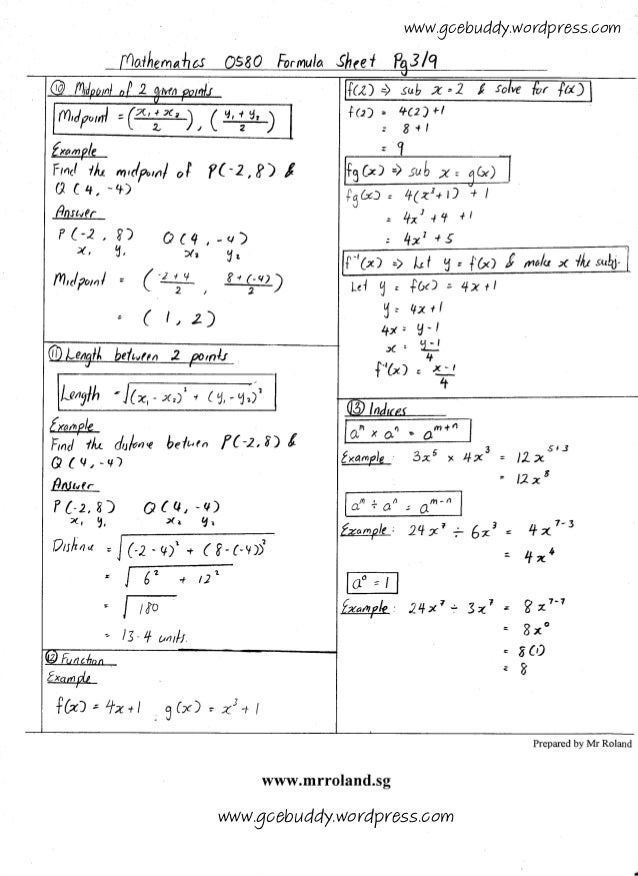 www.gcebuddy.wordpress.com
Mathematics 0580 Formula Sheet Pg 3/9
⑩ Midpoint of 2 given points
Midpoint = ((x₁ + x₂)/2), ((y₁ + y₂)/2)
Example
Find the midpoint of P(-2, 8) &
Q (4, -4)
Answer
P (-2, 8) Q (4, -4)
x₁ y₁ x₂ y₂
Midpoint = ((-2 + 4)/2, (8 + (-4))/2)
= (1, 2)
⑪ Length between 2 points
Length = √((x₁ - x₂)² + (y₁ - y₂)²)
Example
Find the distance between P(-2, 8) &
Q (4, -4)
Answer
P (-2, 8) Q (4, -4)
x₁ y₁ x₂ y₂
Distance = √((-2 - 4)² + (8 - (-4))²)
= √(6² + 12²)
= √180
= 13.4 units.
⑫ Function
Example
f(x) = 4x + 1, g(x) = x³ + 1
f(2) ⇒ sub x = 2 & solve for f(x)
f(2) = 4(2) + 1
= 8 + 1
= 9
fg(x) ⇒ sub x = g(x)
fg(x) = 4(x³ + 1) + 1
= 4x³ + 4 + 1
= 4x³ + 5
f⁻¹(x) ⇒ Let y = f(x) & make x the subj.
Let y = f(x) = 4x + 1
y = 4x + 1
4x = y - 1
x = (y - 1)/4
f⁻¹(x) = (x - 1)/4
⑬ Indices
aᵐ × aⁿ = aᵐ⁺ⁿ
Example: 3x⁵ × 4x³ = 12x⁵⁺³
= 12x⁸
aᵐ ÷ aⁿ = aᵐ⁻ⁿ
Example: 24x⁷ ÷ 6x³ = 4x⁷⁻³
= 4x⁴
a⁰ = 1
Example: 24x⁷ ÷ 3x⁷ = 8x⁷⁻⁷
= 8x⁰
= 8(1)
= 8
Prepared by Mr Roland
www.mrroland.sg
www.gcebuddy.wordpress.com